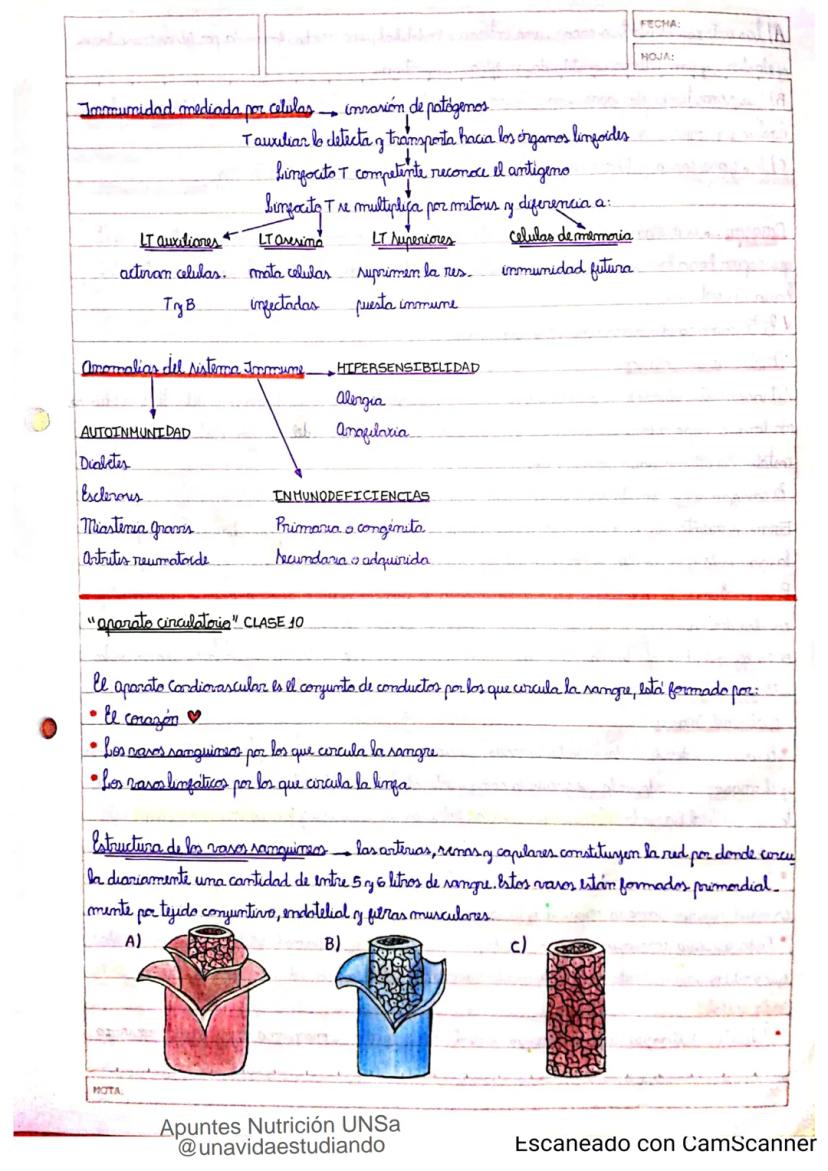 FECHA:
HOJA:
Inmunidad mediada por celulas → invasión de patógenos
T auxiliar lo detecta y transporta hacia los órganos linfoides
Linfocito T competente reconoce el antígeno
Linfocito T se multiplica por mitosis y diferencia a:
LT auxiliares LT asesino LT superiores celulas de memoria
activan celulas. mata celulas suprimen la res- inmunidad futura
T y B infectadas puesta inmune
Anomalías del sistema Inmune → HIPERSENSIBILIDAD
Alergia
AUTOINMUNIDAD Anafilaxia
Diabetes
Esclerosis INMUNODEFICIENCIAS
Miastenia gravis Primaria o congénita
Artritis reumatoide secundaria o adquirida
"aparato circulatorio" CLASE 10
El aparato Cardiovascular es el conjunto de conductos por los que circula la sangre, está formado por:
• El corazón ♥
• Los vasos sanguineos por los que circula la sangre
• Los vasos linfáticos por los que circula la linfa
Estructura de los vasos sanguineos → las arterias, venas y capilares constituyen la red por donde circu
la diariamente una cantidad de entre 5 y 6 litros de sangre. Estos vasos están formados primordial-
mente por tejido conjuntivo, endotelial y fibras musculares.
A) B) C)
NOTA:
Apuntes Nutrición UNSa
@unavidaestudiando
Escaneado con CamScanner